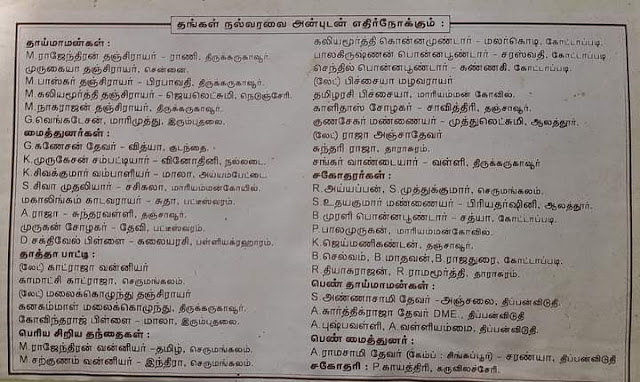 தங்கள் நல்வரவை அன்புடன் எதிர்நோக்கும் :
தாய்மாமன்கள் :
M.ராஜேந்திரன் தஞ்சிராயர் - ராணி, திருக்கருகாவூர்.
முருகையா தஞ்சிராயர், சென்னை.
M.பாஸ்கர் தஞ்சிராயர் - பிரபாவதி, திருக்கருகாவூர்.
M.கலியமூர்த்தி தஞ்சிராயர் - ஜெயலெட்சுமி, நெடுஞ்சேரி.
M.நாகராஜன் தஞ்சிராயர், திருக்கருகாவூர்.
G.வெங்கடேசன், மாரிமுத்து, இரும்புதலை.
மைத்துனர்கள் :
G.கணேசன் தேவர் - வித்யா, குடந்தை.
K.முருகேசன் சம்பட்டியார் - வினோதினி, நல்லடை.
K.சிவக்குமார் வம்பாளியார் - மாலா, அய்யம்பேட்டை.
S சிவா முதலியார் - சசிகலா, மாரியம்மன்கோயில்.
மகாலிங்கம் காடவராயர் - சுதா, பட்டீஸ்வரம்.
A.ராஜா - சுந்தரவள்ளி, தஞ்சாவூர்.
முருகன் சோழகர் - தேவி, பட்டீஸ்வரம்.
D.சக்திவேல் பிள்ளை - கலையரசி, பள்ளியக்ரஹாரம்.
தாத்தா பாட்டி :
(லேட்) காட்ராஜா வன்னியர்
காமாட்சி காட்ராஜா, செருமங்கலம்.
(லேட்) மலைக்கொழுந்து தஞ்சிராயர்
கனகம்மாள் மலைக்கொழுந்து, திருக்கருகாவூர்.
கோவிந்தராஜ் பிள்ளை - மாலா, இரும்புதலை.
பெரிய சிறிய தந்தைகள் :
M.ராஜேந்திரன் வன்னியர் -தமிழ், செருமங்கலம்.
M சற்குணம் வன்னியர் - இந்திரா, செருமங்கலம்.
கலியமூர்த்தி கொன்னமுண்டார் - மலர்கொடி, கோட்டாப்படி.
பாலகிருஷ்ணன் பொன்னபூண்டார் - சரஸ்வதி, கோட்டாப்படி.
செந்தில் பொன்னபூண்டார் - கண்ணகி, கோட்டாப்படி.
(லேட்) பிச்சையா மழவராயர்
தமிழரசி பிச்சையா, மாரியம்மன் கோவில்.
காளிதாஸ் சோழகர் - சாவித்திரி, தஞ்சாவூர்.
குணசேகர் மண்ணையர் - முத்துலெட்சுமி, ஆலத்தூர்.
(லேட்) ராஜா அஞ்சாதேவர்
சுந்தரி ராஜா, தாராசுரம்.
சங்கர் வாண்டையார் - வள்ளி, திருக்கருகாவூர்
சகோதரர்கள் :
R.அய்யப்பன், S.முத்துக்குமார், செருமங்கலம்.
S.உதயகுமார் மண்ணையர் - பிரியதர்ஷினி, ஆலத்தூர்.
B முரளி பொன்னபூண்டார் - சத்யா, கோட்டாப்படி.
P.பாலமுருகன், மாரியம்மன்கோவில்.
K.ஜெய்மணிகண்டன், தஞ்சாவூர்.
B.செல்வம், B.மாதவன்,B.ராஜதுரை, கோட்டாப்படி.
R.தியாகராஜன், R ராமமூர்த்தி, தாராசுரம்.
பெண் தாய்மாமன்கள் :
S அண்ணாசாமி தேவர் -அஞ்சலை, தீப்பன்விடுதி
A.கார்த்திக்ராஜா தேவர் DME., தீப்பன்விடுதி
A.புஷ்பவள்ளி, A.வள்ளியம்மை, தீப்பன்விடுதி.
பெண் மைத்துனர் :
A ராமசாமி தேவர் (கேம்ப் : சிங்கப்பூர்) - சரண்யா, தீப்பன்விடுதி
சகோதரி : P.காயத்திரி, கருவிலச்சேரி.